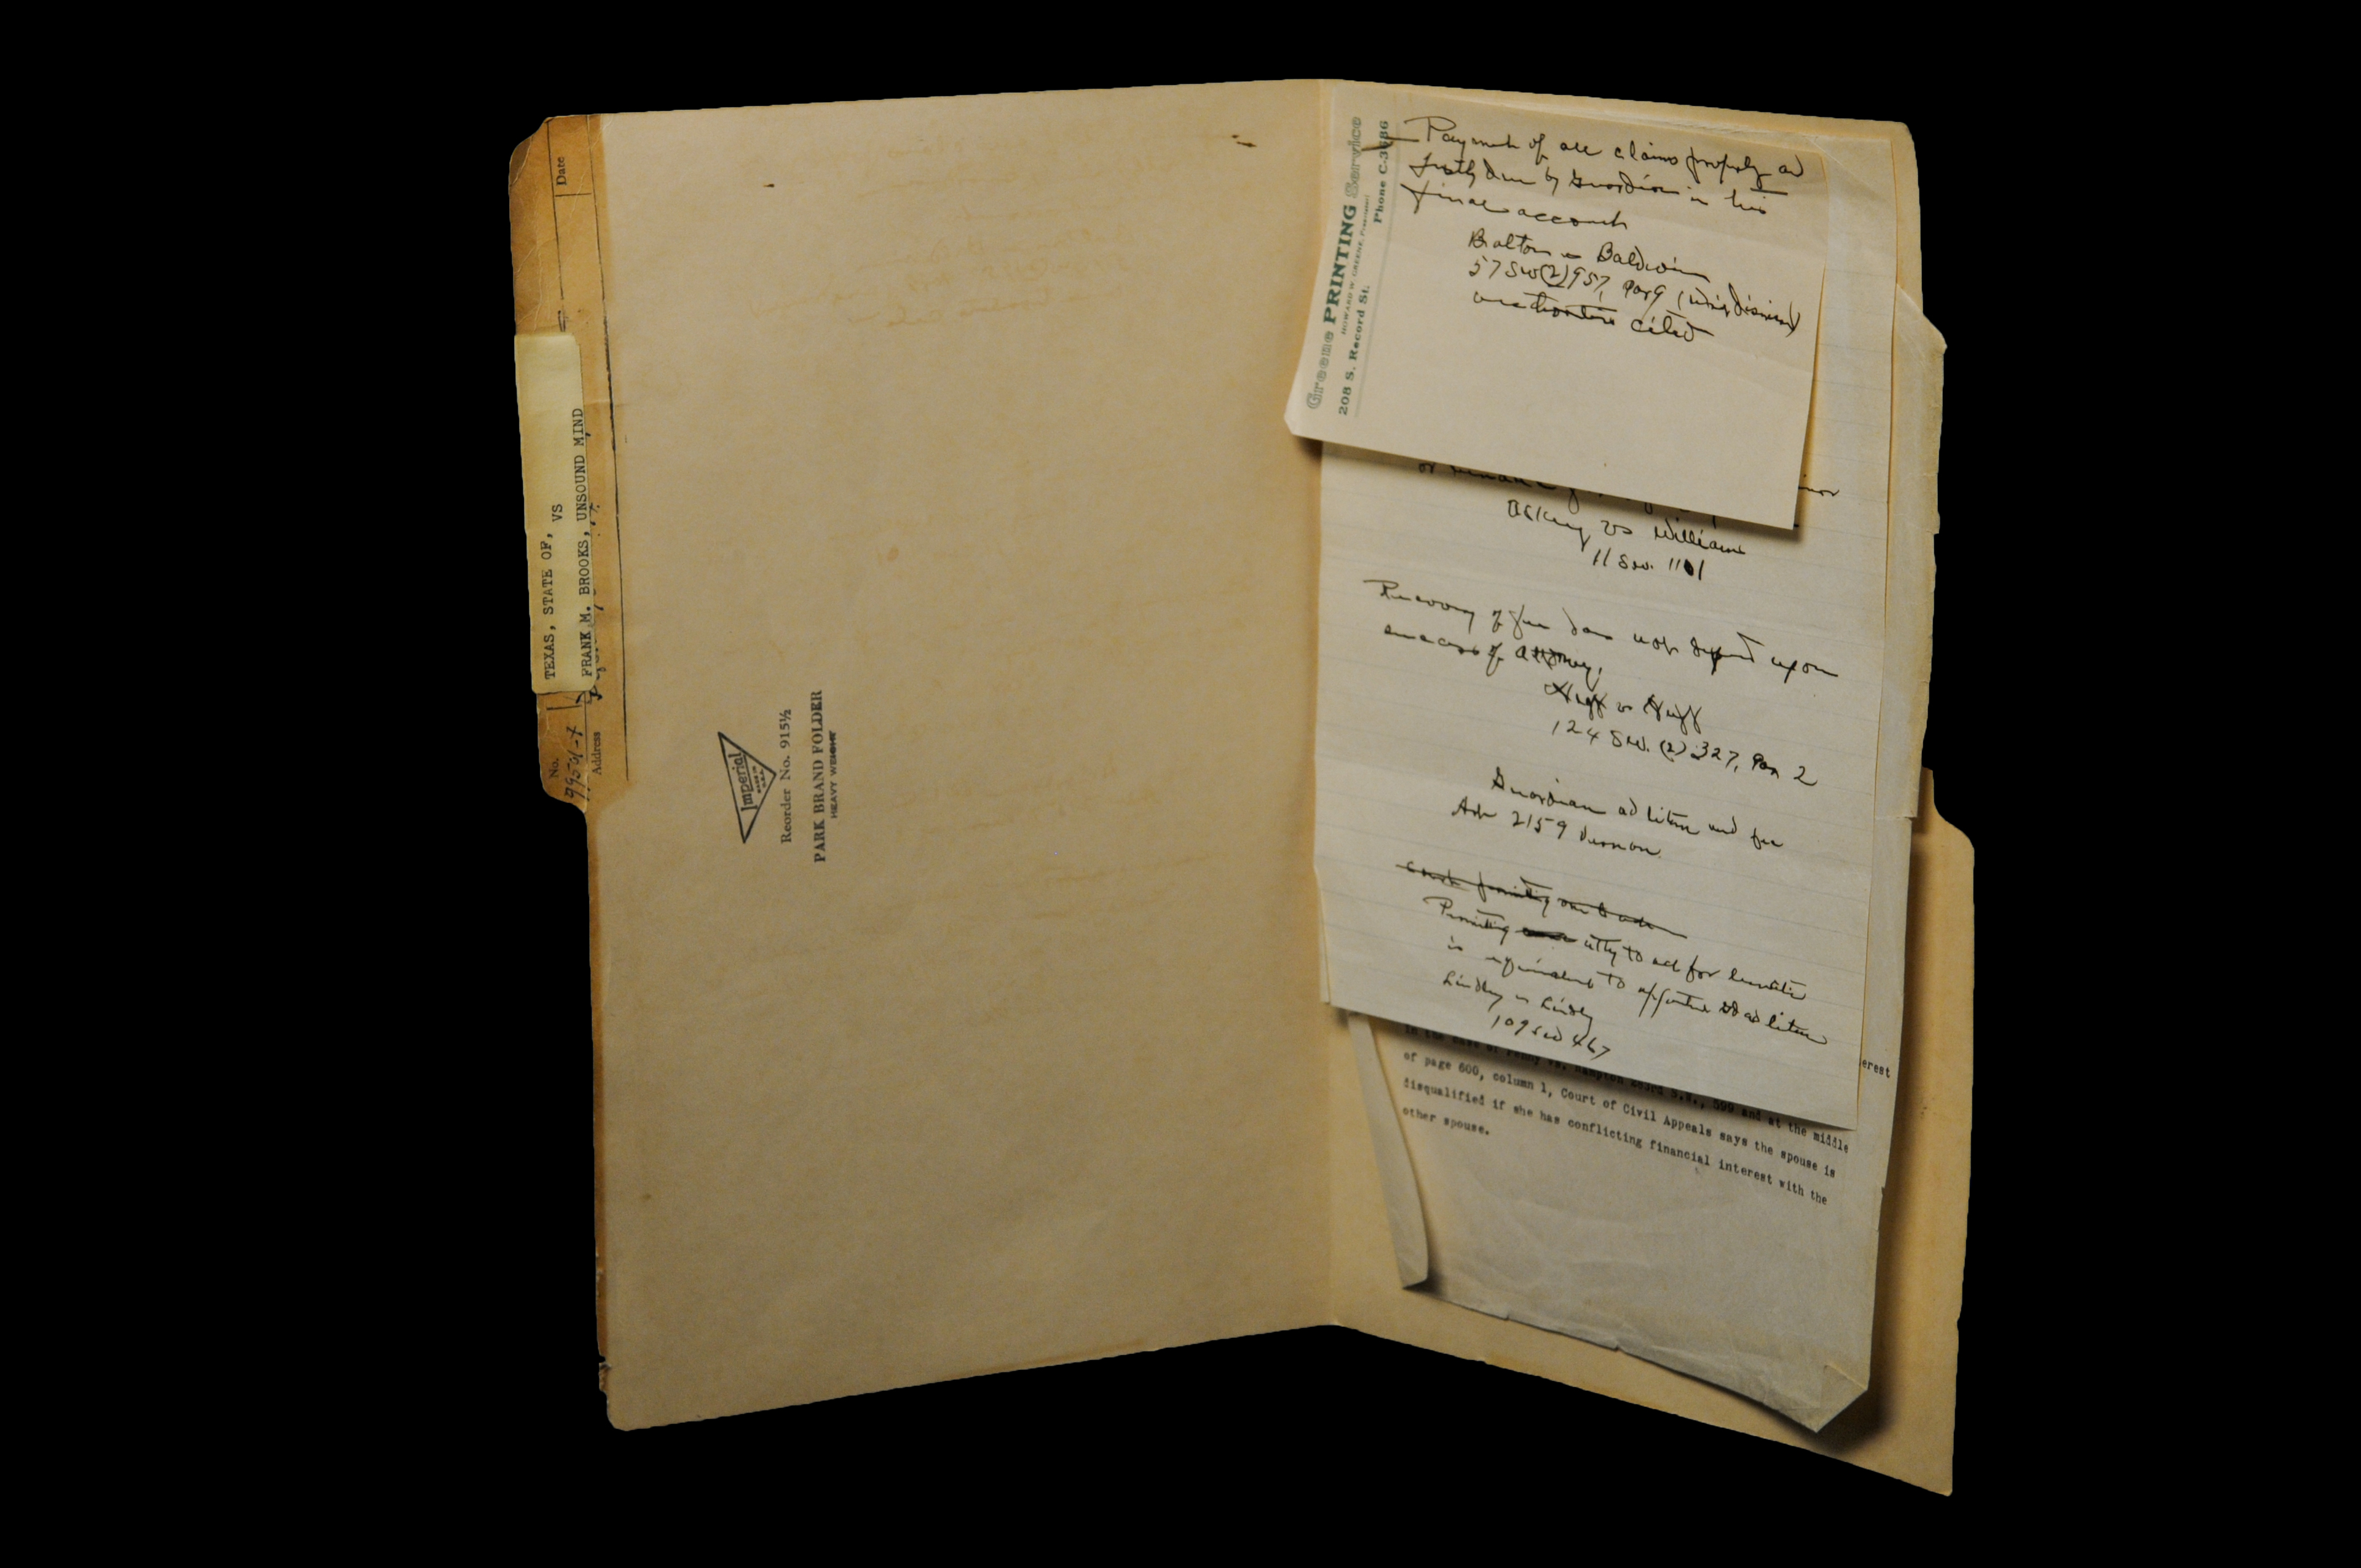 Date
TEXAS, STATE OF, VS
FRANK M. BROOKS, UNSOUND MIND
No.
Address
Imperial
MADE IN
U.S.A.
Reorder No. 915½
PARK BRAND FOLDER
HEAVY WEIGHT
Greene PRINTING Service
HOWARD W. GREENE
208 S. Record St.
Phone C-3686
Payment of all claims properly and
justly due by Guardian in his
final account
Baldwin
57 SW(2) 957, Par 9
cited
or
vs Williams
11 S.W. 1101
Recovery of fee does not depend upon
success of attorney.
Huff vs Huff
124 S.W. (2) 327, Par 2
Guardian ad litem and fee
Art 2159 Vernon
Permitting atty to act for lunatic
is equivalent to ad litem
Lindly vs Lindly
109 SW 467
erest
in the case of vs. Hampton S.W., 599 and at the middle
of page 600, column 1, Court of Civil Appeals says the spouse is
disqualified if she has conflicting financial interest with the
other spouse.